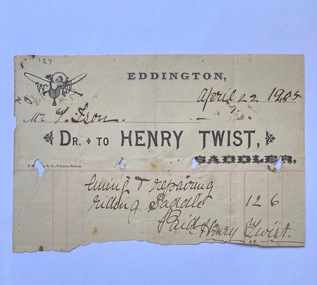 127
EDDINGTON,
April 22 1905
Mr
DR. TO HENRY TWIST,
SADDLER,
lining & repairing
riding Saddle 12 6
Paid Henry Twist.